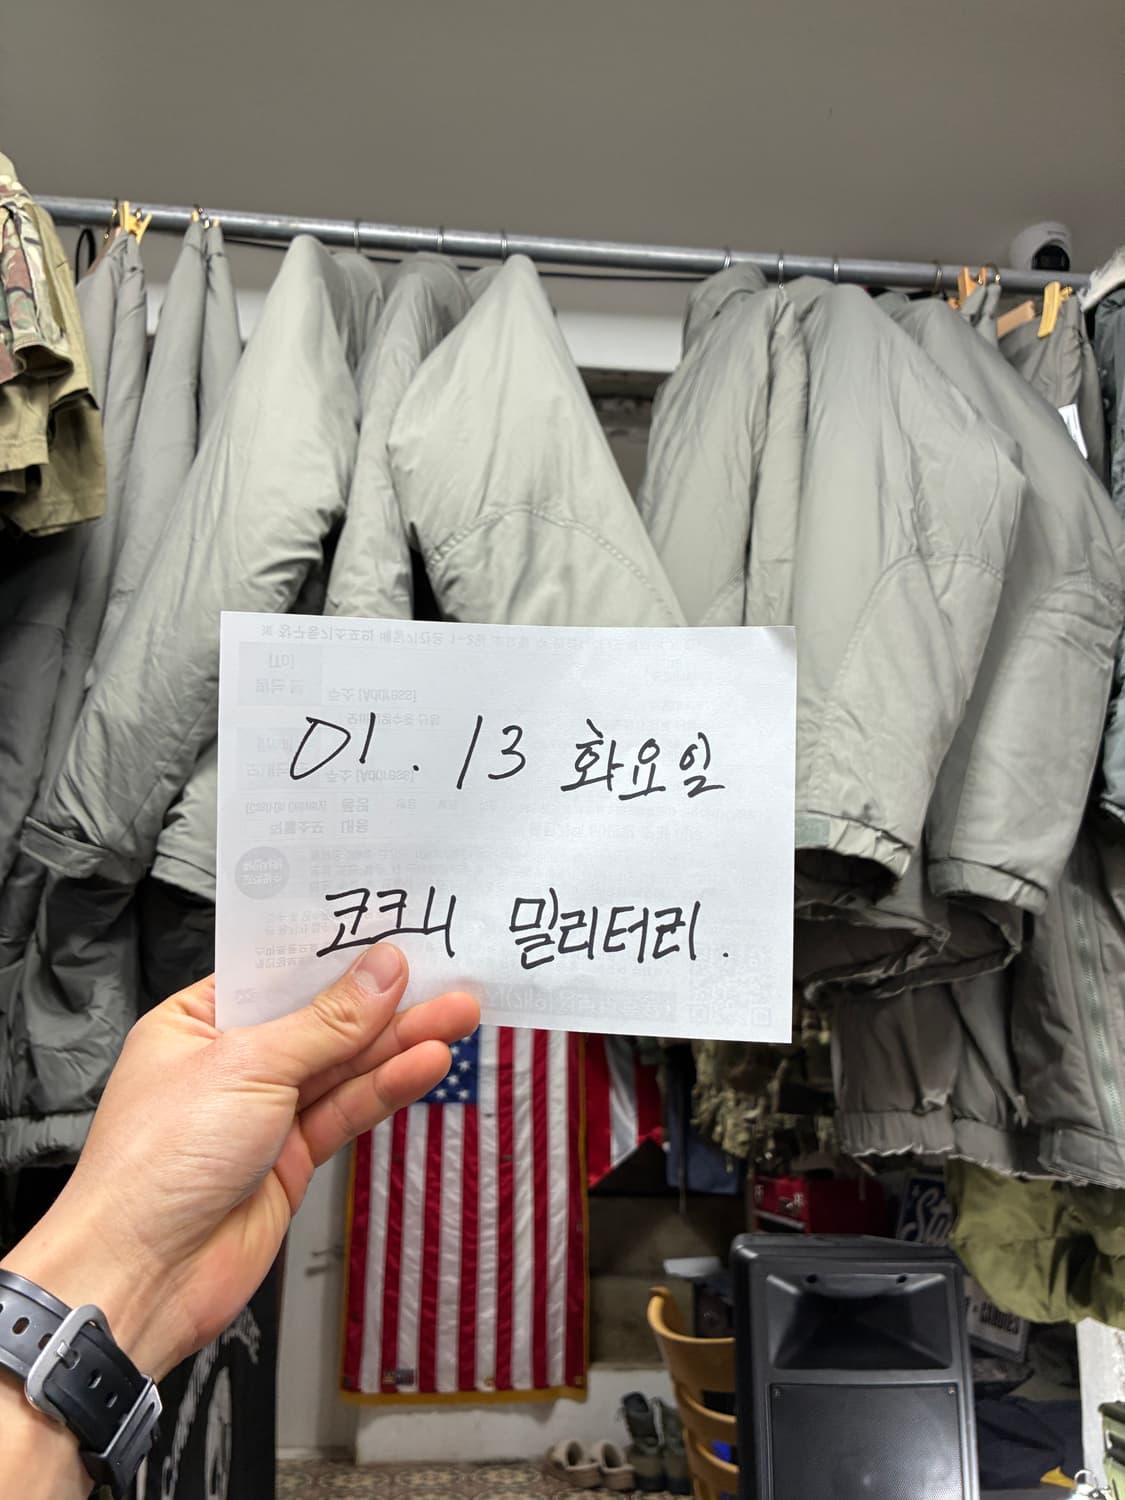 01. 13 화요일
코크니 밀리터리.